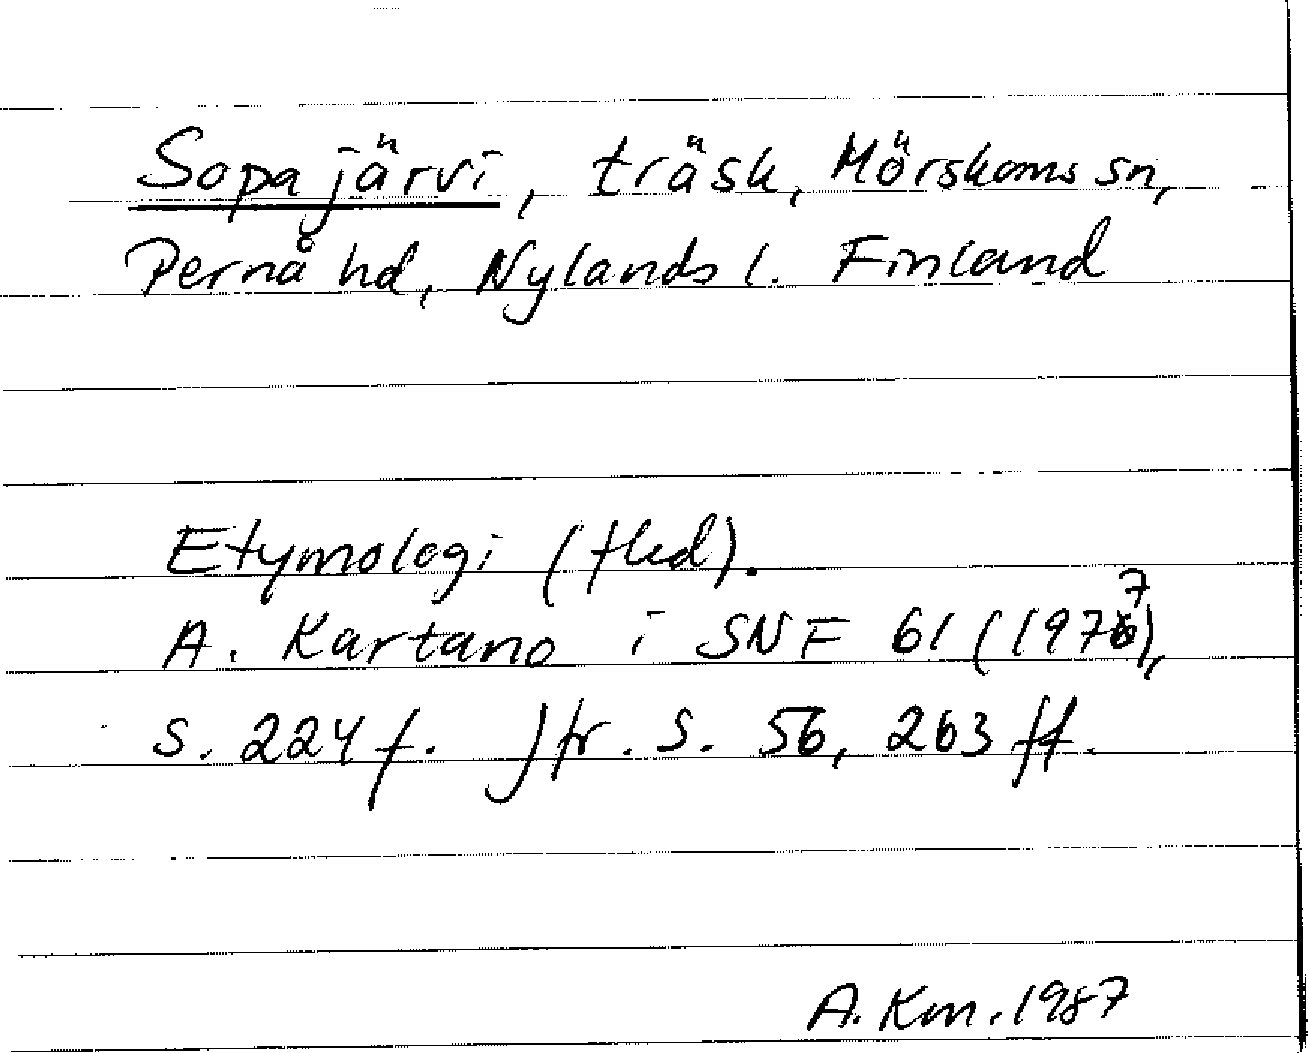 Sopajärvi, träsk, Mörskoms sn,
Pernå hd, Nylands l. Finland
Etymologi (fled).
A. Kartano i SNF 61 (1977),
s. 224 f. Jfr. s. 56, 263 ff.
A. Km. 1987